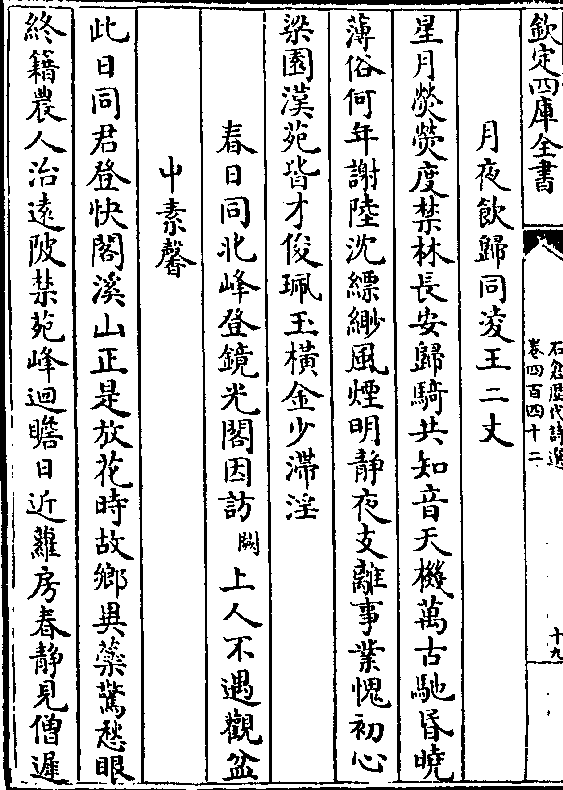 欽定四庫全書
石倉歷代詩選
卷四百四十二
十九
月夜飲歸同凌王二丈
星月熒熒度禁林長安歸騎共知音天機萬古馳昏曉
薄俗何年謝陸沈縹緲風煙明靜夜支離事業愧初心
梁園漢苑皆才俊珮玉橫金少滯淫
春日同北峰登鏡光閣因訪闕上人不遇觀盆
中素馨
此日同君登快閣溪山正是放花時故鄉異藥驚愁眼
終籍農人治遠陂禁苑峰迴瞻日近蘿房春靜見僧遲